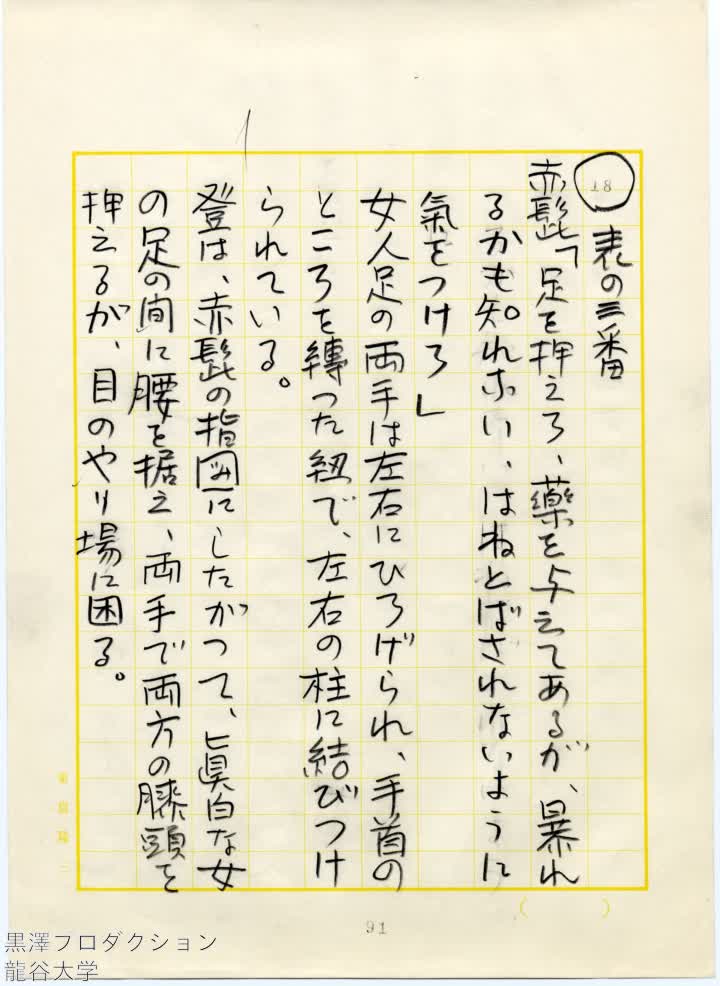 18 表の三番
赤髭「足を押えろ、薬を与えてあるが、暴れ
るかも知れない、はねとばされないように
氣をつけろ」
女人足の両手は左右にひろげられ、手首の
ところを縛った紐で、左右の柱に結びつけ
られている。
登は、赤髭の指図にしたがって、眞白な女
の足の間に腰を据え、両手で両方の膝頭を
押えるが、目のやり場に困る。
91
黒澤プロダクション
龍谷大学